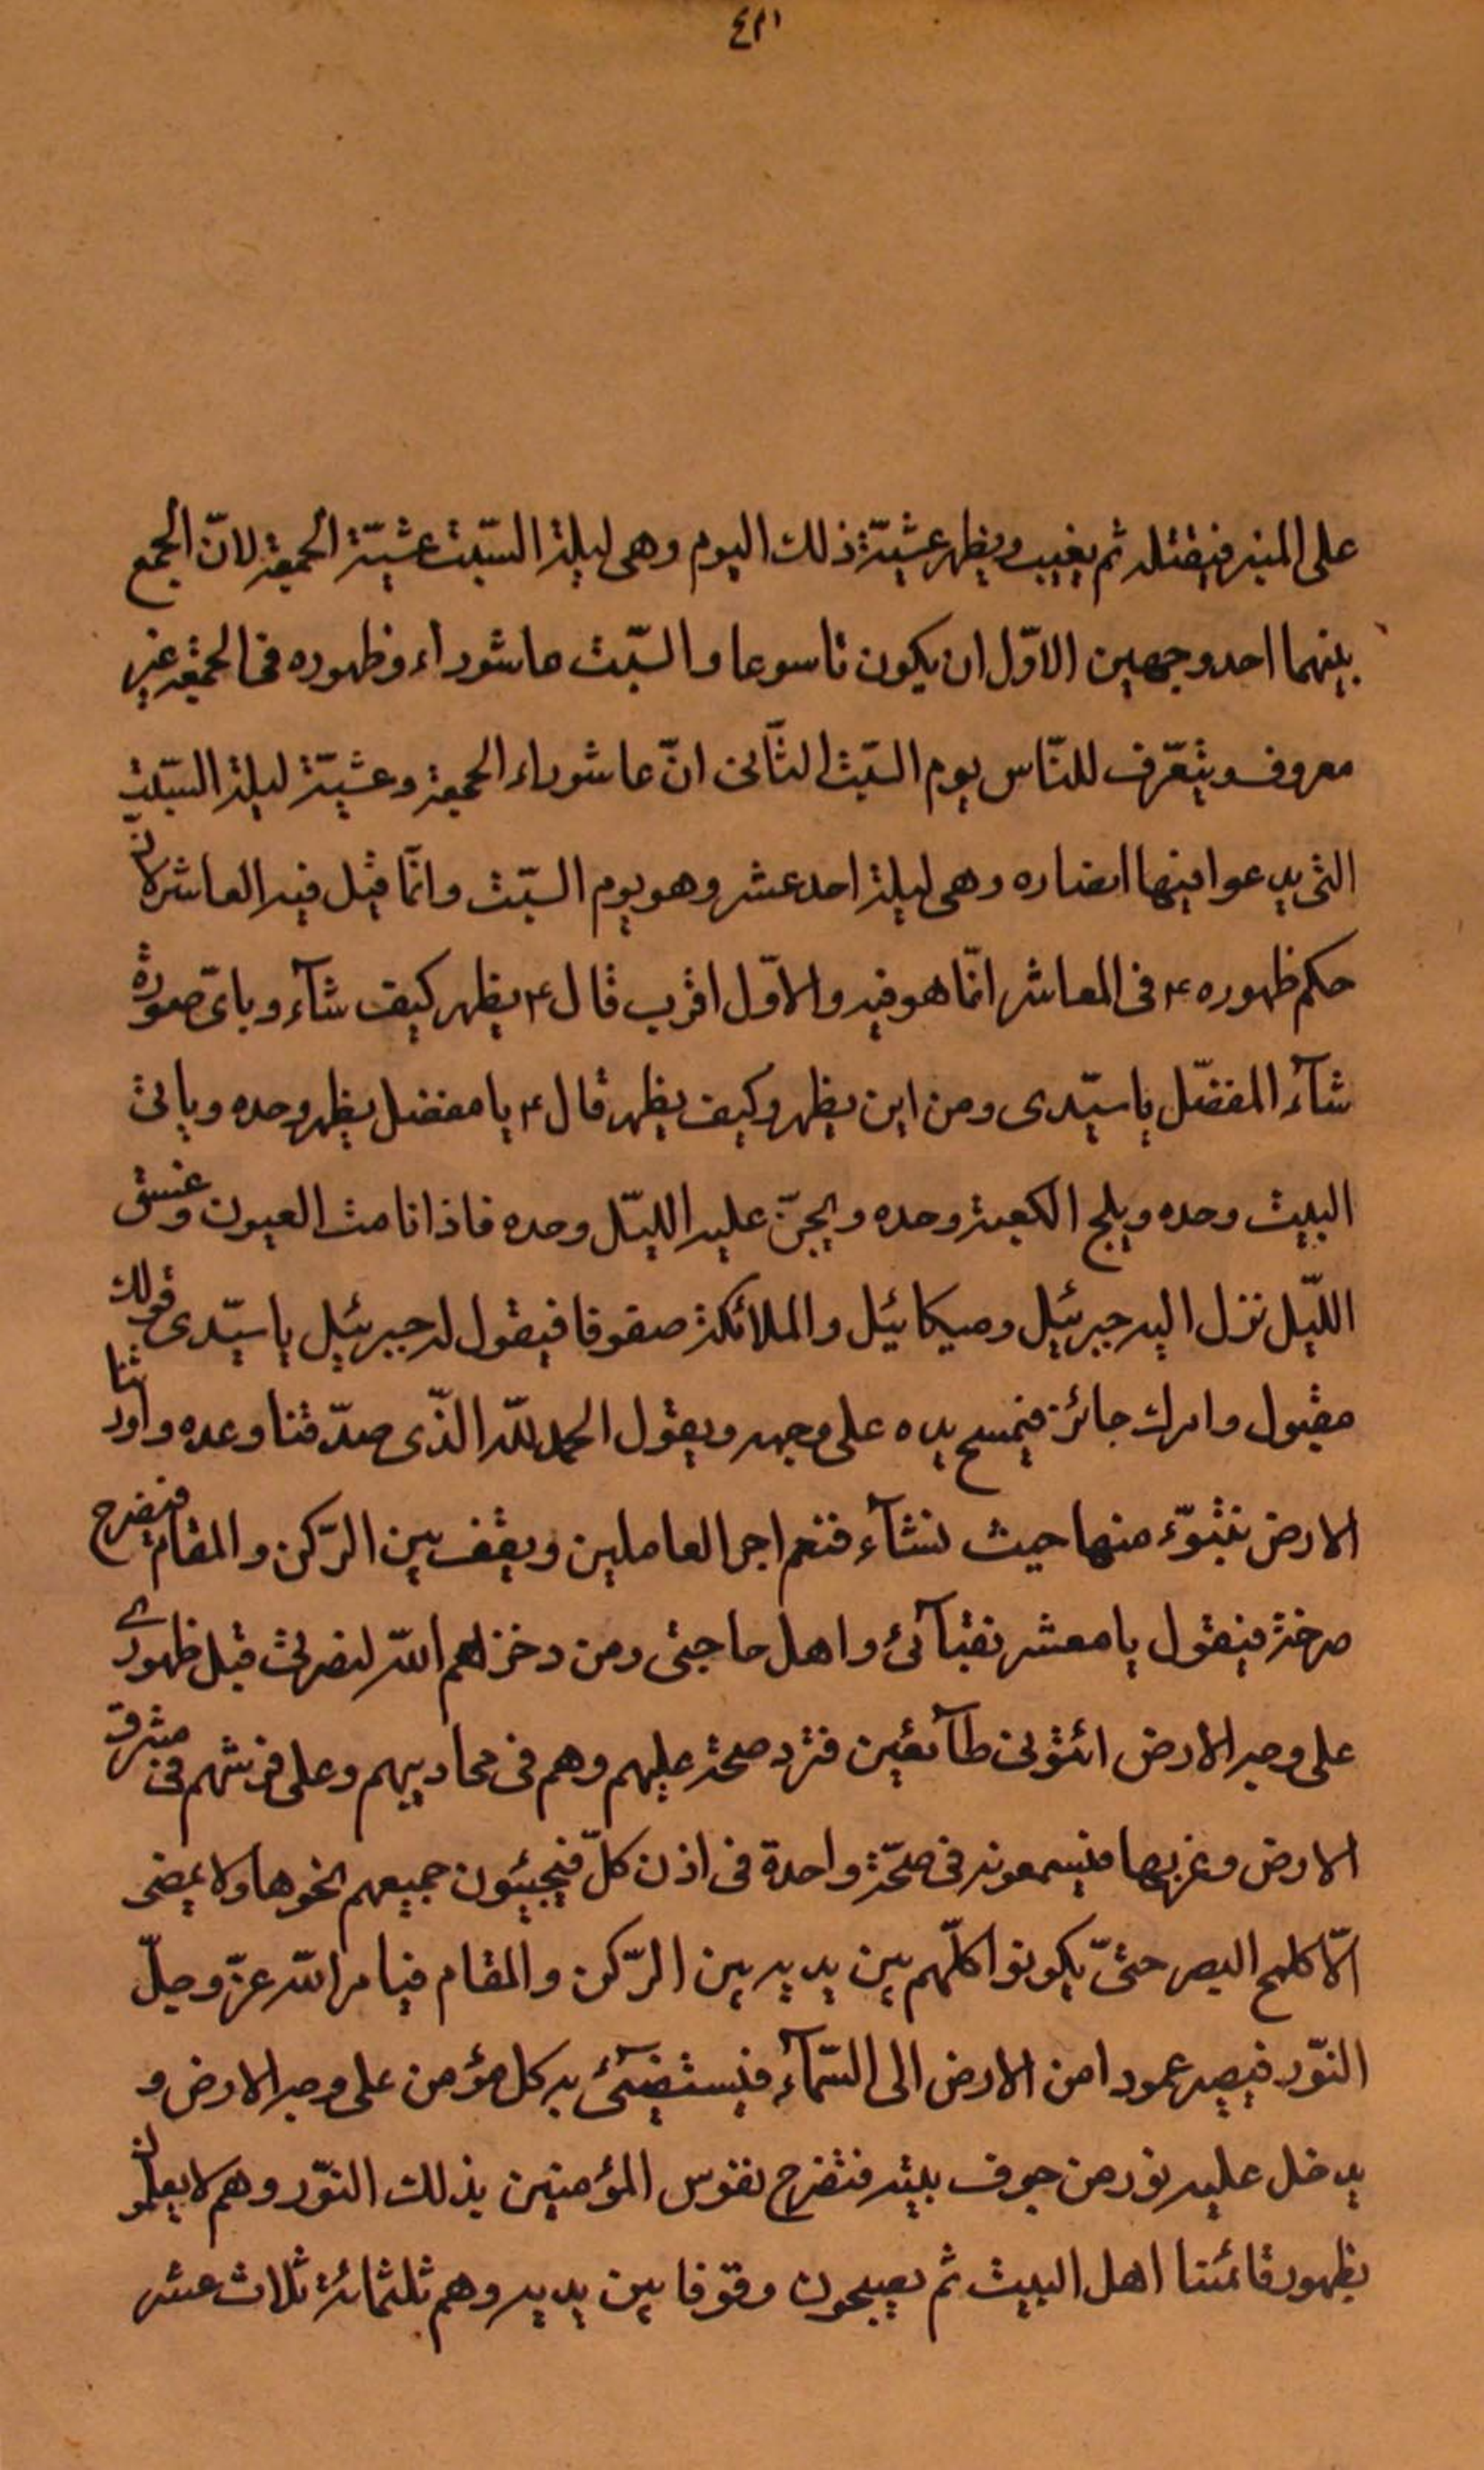 ٤٣١
على المنبر فيقتله ثم يغيب ويظهر عشيّة ذلك اليوم وهى ليلة السّبت عشيّة الجمعة لانّ الجمع
بينهما احد وجهين الاوّل ان يكون تاسوعا والسّبت عاشوراء وظهوره فى الجمعة غير
معروف ويتعرّف للنّاس يوم السّبت الثّانى انّ عاشوراء الجمعة وعشيّة ليلة السّبت
التى يدعوا فيها انصاره وهى ليلة احد عشر وهو يوم السّبت وانّما قيل فيه العاشر لانّ
حكم ظهوره ۴ فى العاشر انّما هو فيه والاوّل اقرب قال ۴ يظهر كيف شآء وباىّ صورة
شآء المفضّل يا سيّدى ومن اين يظهر وكيف يظهر قال ۴ يا مفضل يظهر وحده وياتى
البيت وحده ويلج الكعبة وحده ويجنّ عليه اللّيل وحده فاذا نامت العيون وغسق
اللّيل نزل اليه جبرئيل وميكائيل والملائكة صفوفا فيقول له جبرئيل يا سيّدى قولك
مقبول وامرك جائز فيمسح يده على وجهه ويقول الحمد للّه الذّى صدّقنا وعده واورثنا
الارض نتبوّء منها حيث نشآء فنعم اجر العاملين ويقف بين الرّكن والمقام فيصرخ
صرخة فيقول يا معشر نقبآئى واهل حاجتى ومن دخرهم اللّه لنصرتى قبل ظهورى
على وجه الارض ائتونى طآئعين فترد صحة عليهم وهم فى محاريبهم وعلى فرشهم فى مشرق
الارض وغربها فيسمعونه فى صحّة واحدة فى اذن كلّ فيجيئون جميعهم نحوها ولا يمضى
الّا كلمح البصر حتىّ يكونوا كلّهم بين يديه بين الرّكن والمقام فيامر اللّه عزّ وجلّ
النّور فيصير عمودا من الارض الى السّمآء فيستضيئ به كل مؤمن على وجه الارض و
يدخل عليه نور من جوف بيته فتفرح نفوس المؤمنين بذلك النّور وهم لا يعلمون
بظهور قائمنا اهل البيت ثم يصبحون وقوفا بين يديه وهم ثلثمائة ثلاث عشر